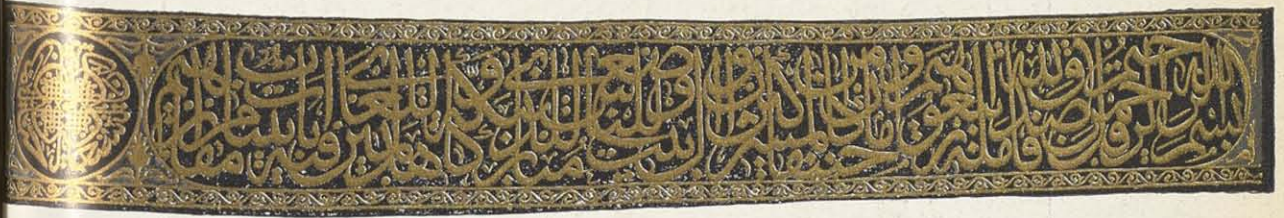 بسم الله الرحمن الرحيم قل صدق الله فاتبعوا ملة ابرهيم حنيفا وما كان من المشركين ان اول بيت وضع للناس للذي ببكة مباركا وهدى للعالمين فيه ايات بينات مقام ابرهيم